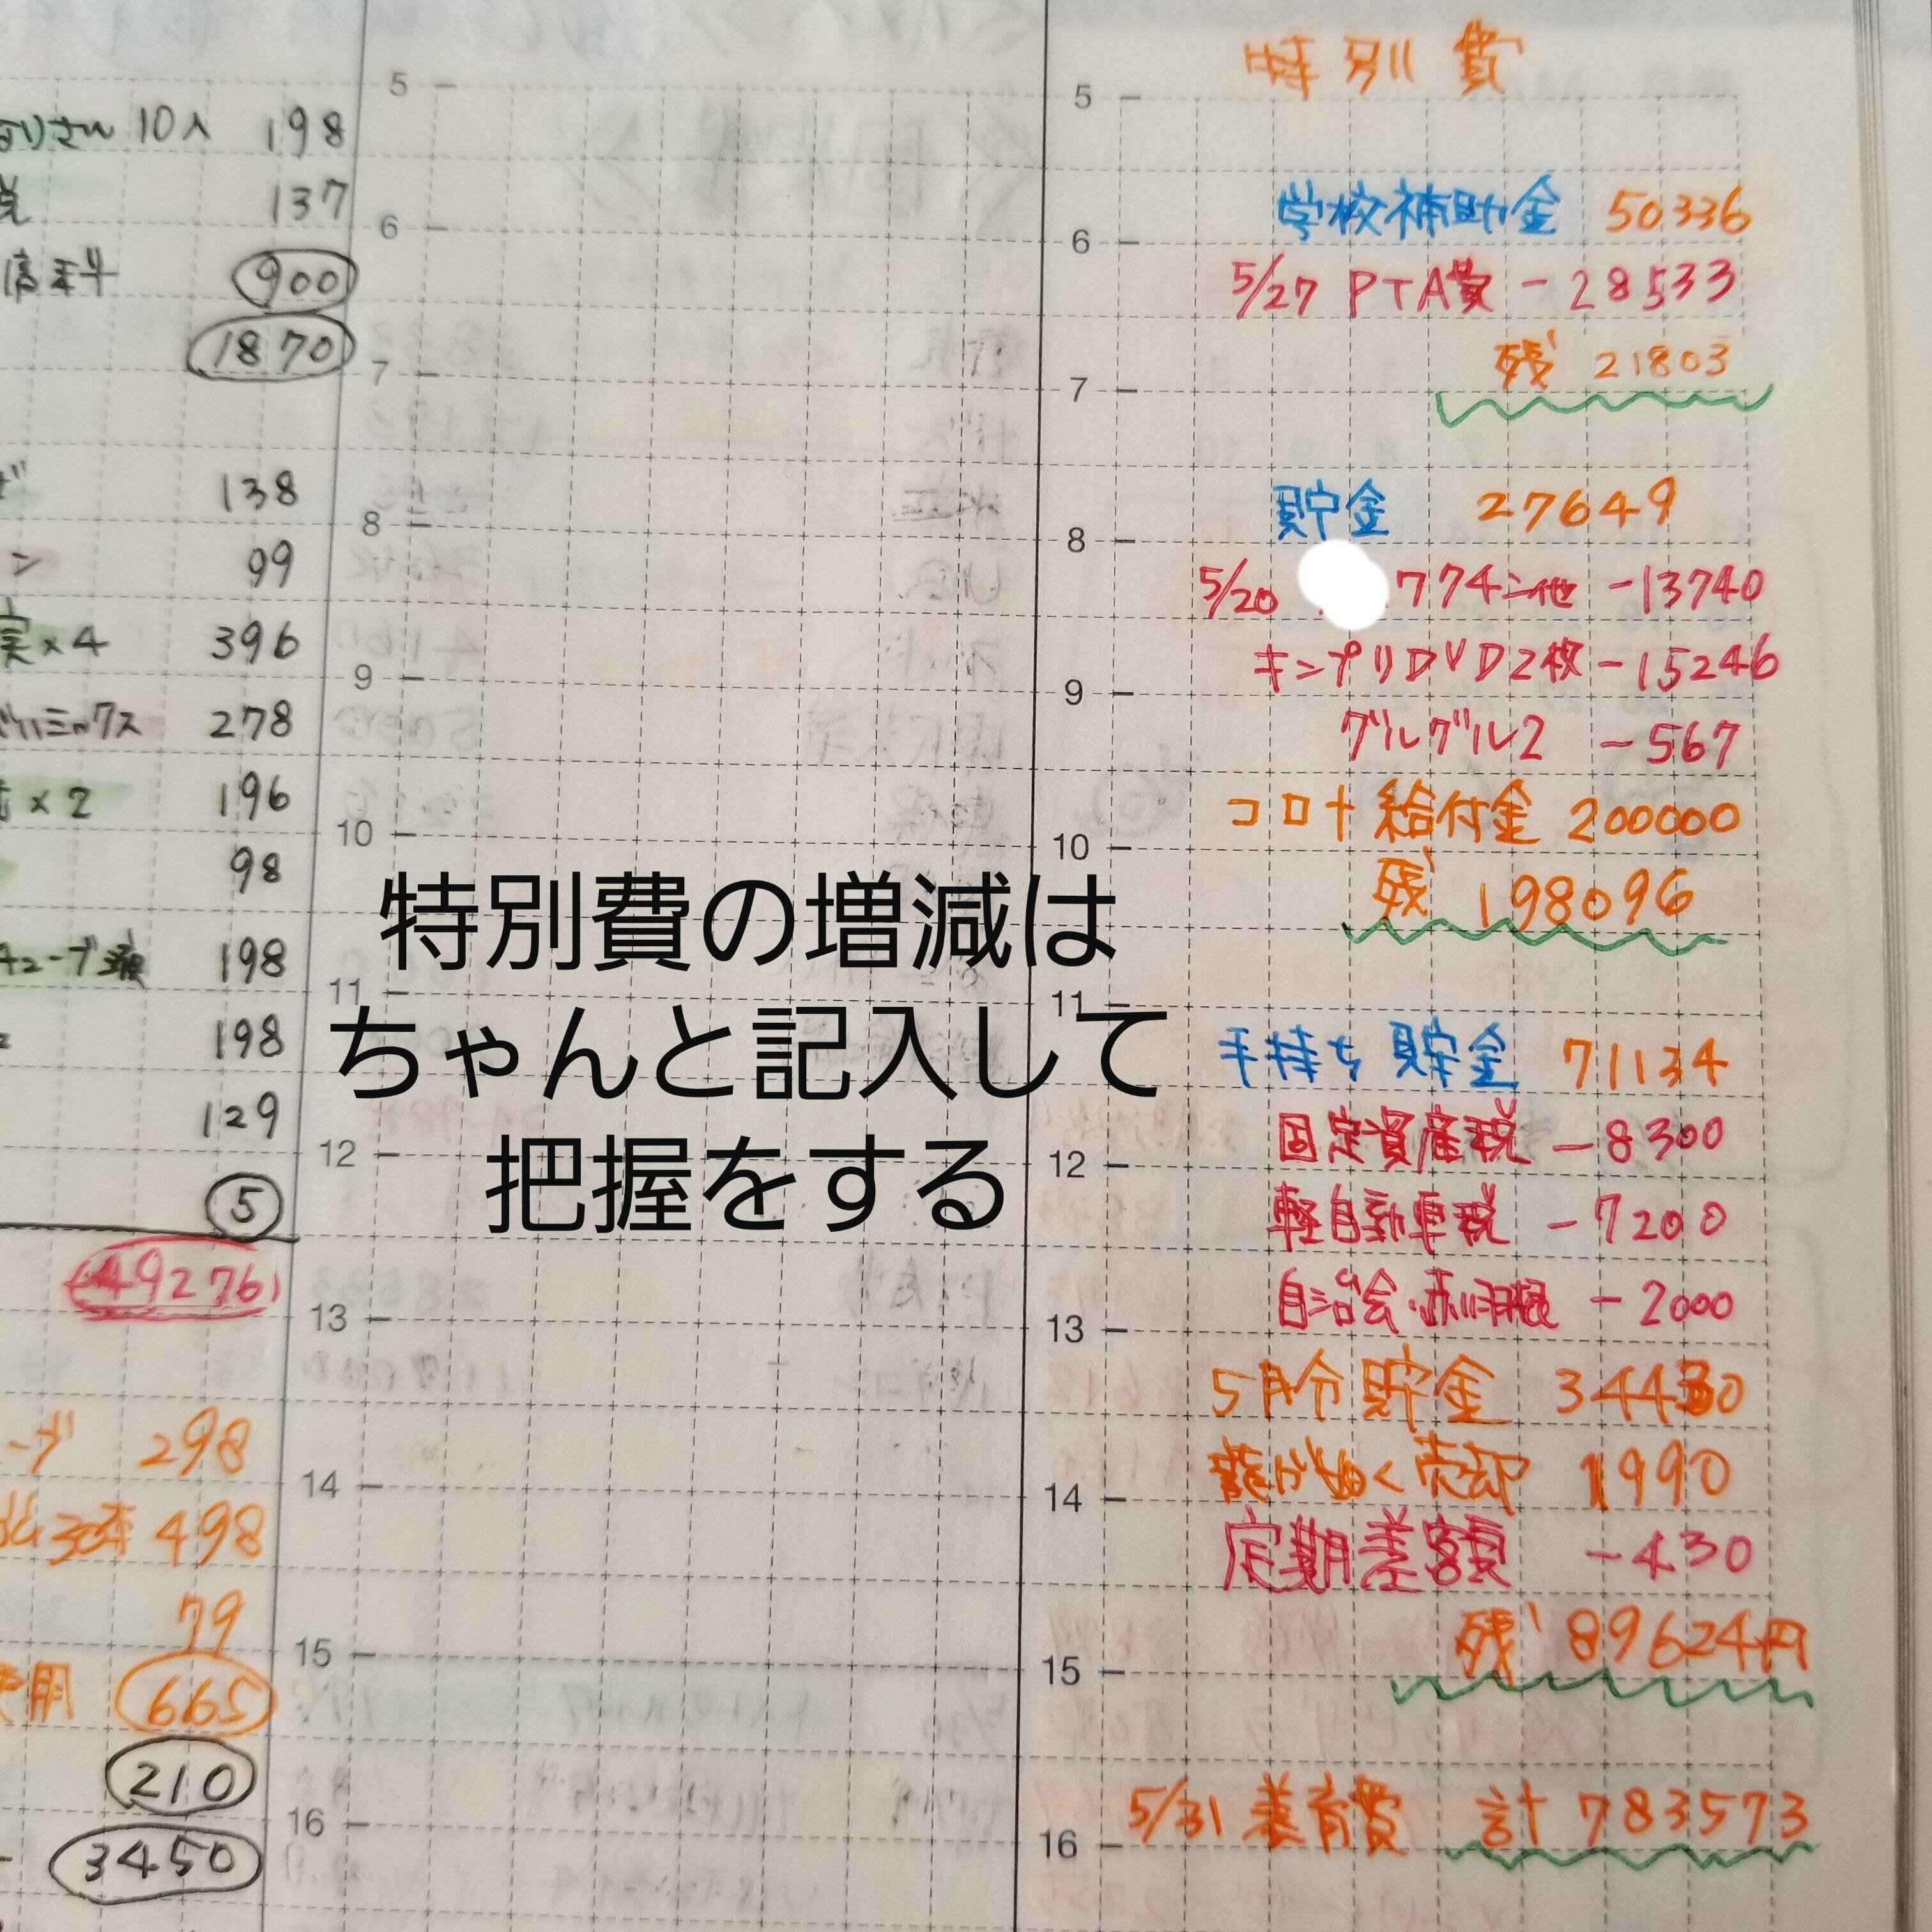 10人 198
137
900
1870
138
99
実×4 396
ミックス 278
×2 196
98
チューブ 198
198
129
5
49276
298
498
79
費用 665
210
3450
5
6
7
8
9
10
11
12
13
14
15
16
特別費の増減は
ちゃんと記入して
把握をする
特別費
5
6
7
8
9
10
11
12
13
14
15
16
学校補助金 50336
5/27 PTA費 -28533
残 21803
貯金 27649
5/20 ワクチン他 -13740
キンプリDVD2枚 -15246
グルグル2 -567
コロナ給付金 200000
残 198096
手持ち貯金 71134
固定資産税 -8300
軽自動車税 -7200
自治会・赤羽根 -2000
5月分貯金 34430
龍が如く売却 1990
定期差額 -430
残 89624円
5/31 養育費 計 783573